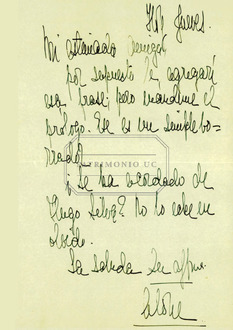 Hoy Jueves.
Mi estimado amigo:
por supuesto le agregaré
esa frase; pero mándeme el
prólogo. Ese es un simple bo=
rrador.
PATRIMONIO UC
¿ se ha acordado de
Hugo Silva? No lo eche en
olvido.
La saluda su affmo.